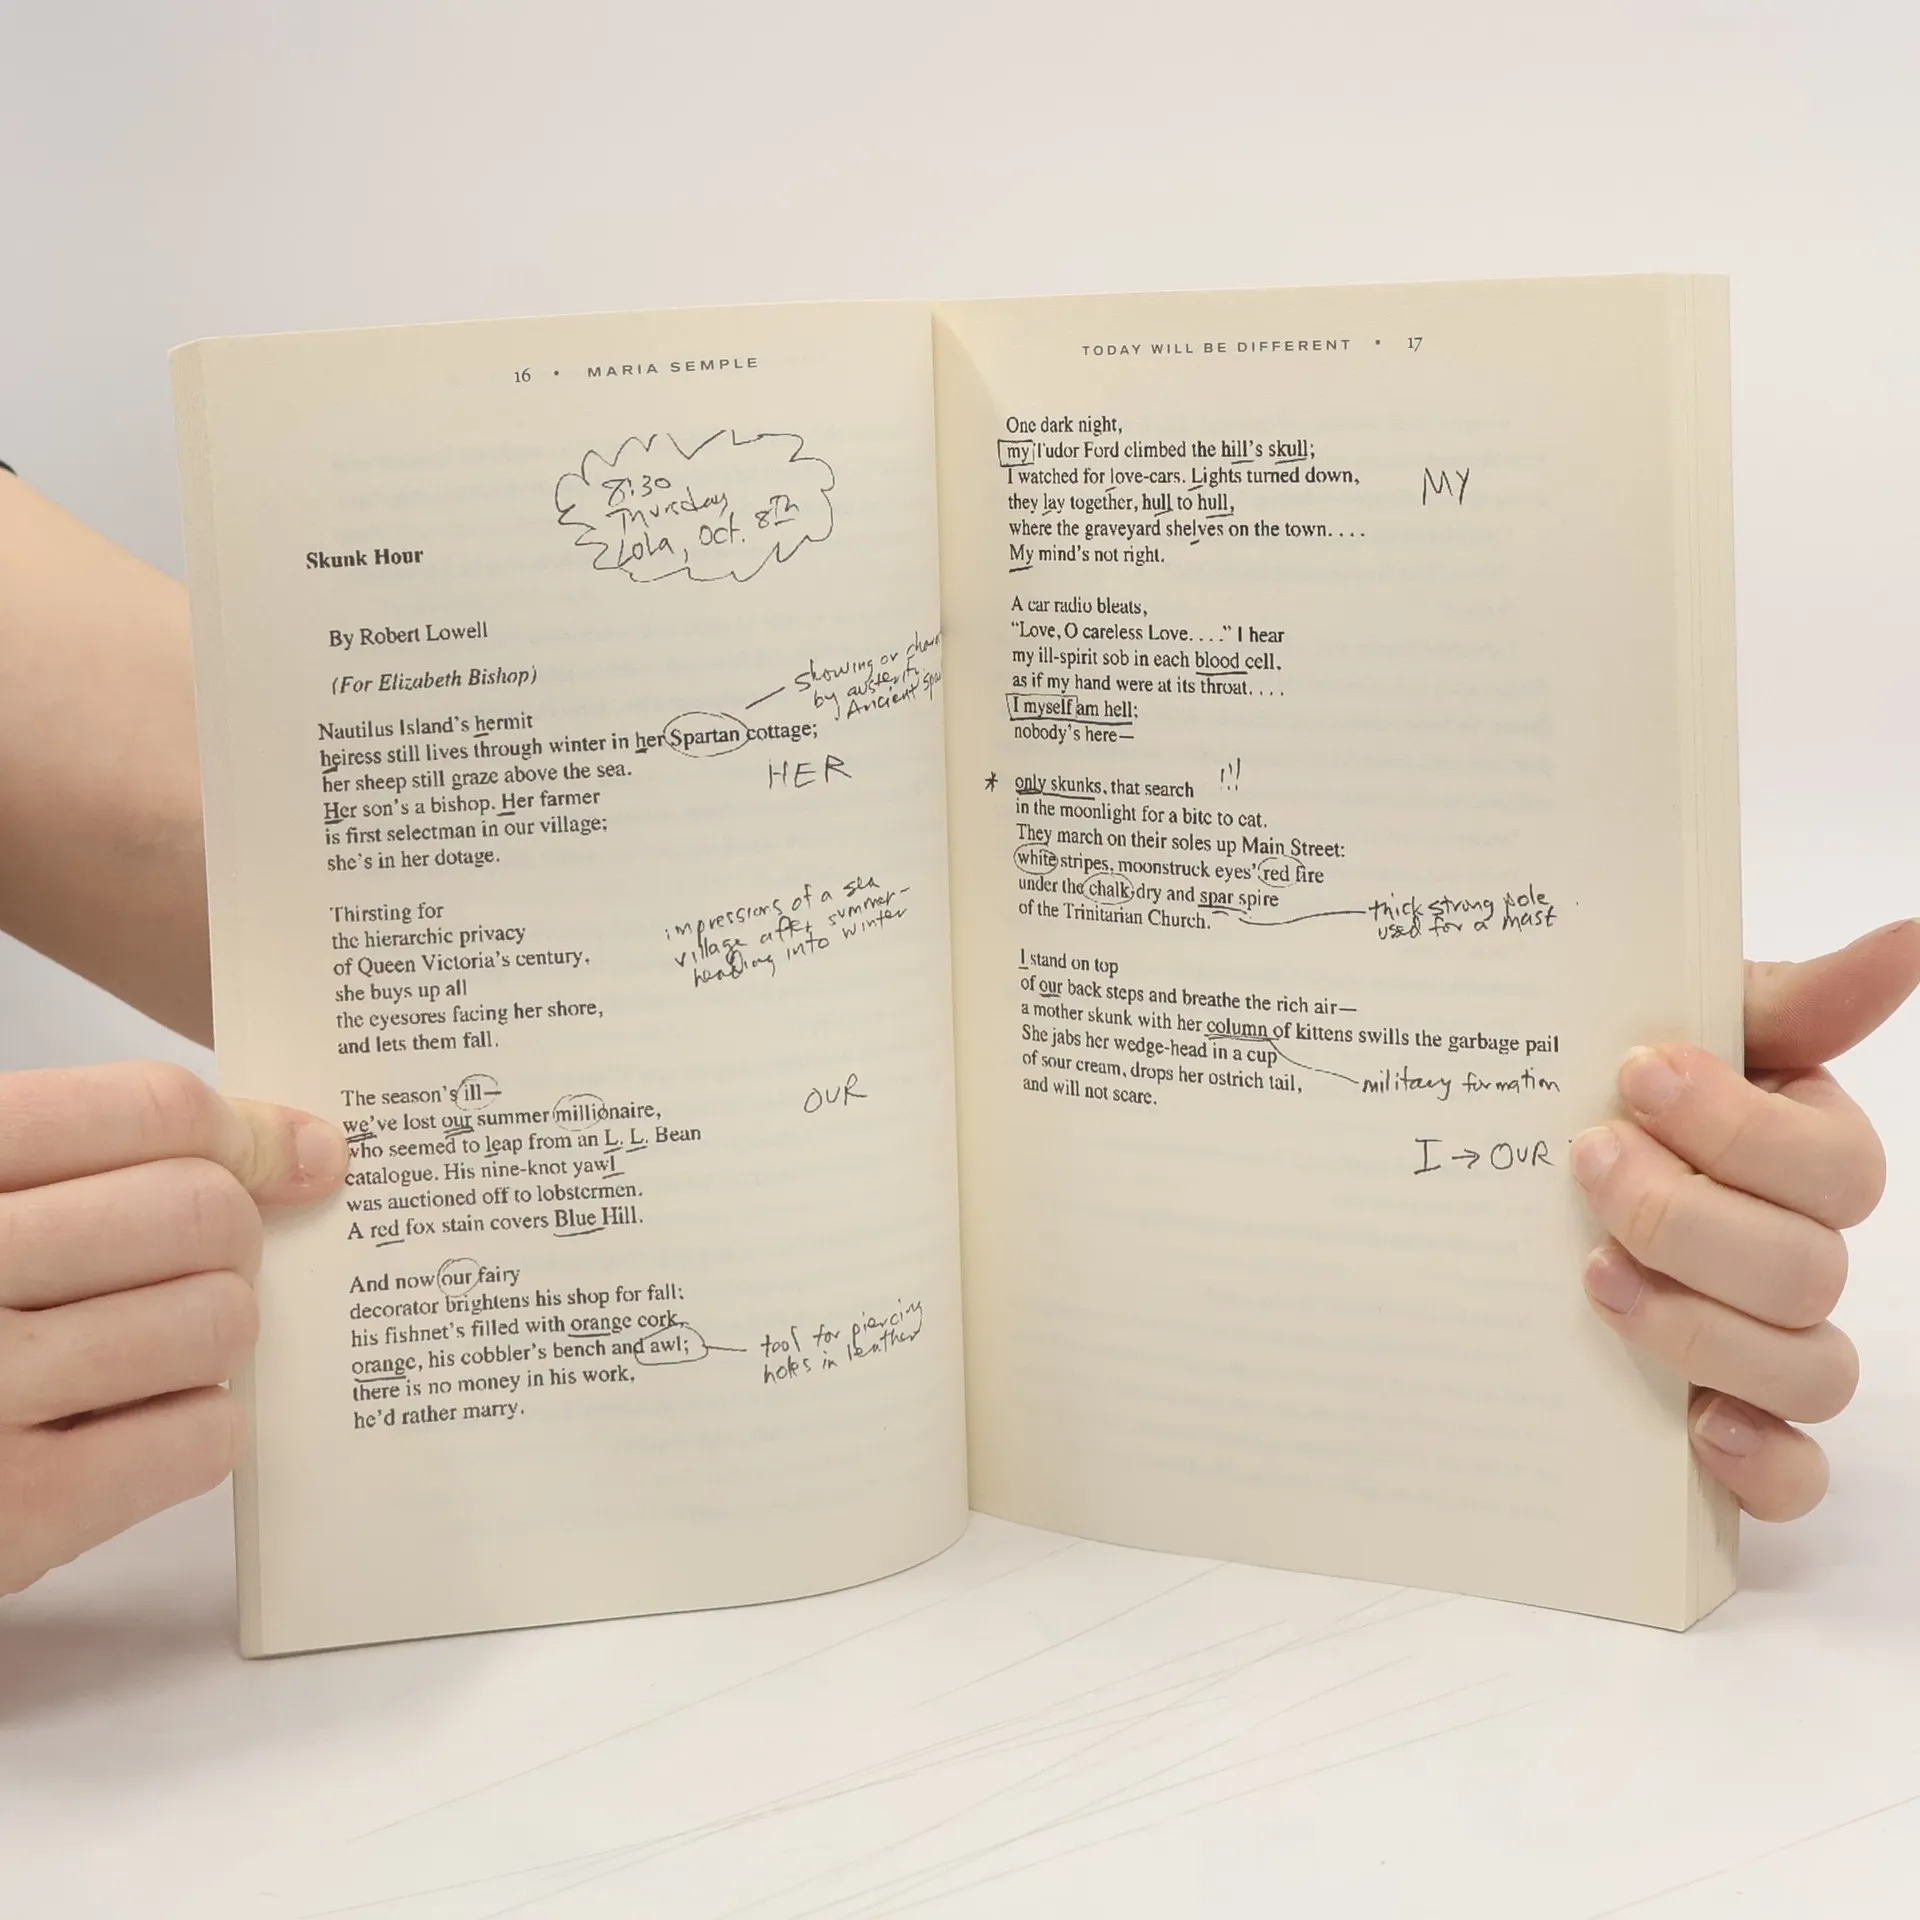 16 • MARIA SEMPLE
8:30
Thursday
Lola, Oct. 8Th
Skunk Hour
By Robert Lowell
(For Elizabeth Bishop)
showing or
by austerity
Ancient
Nautilus Island's hermit
heiress still lives through winter in her Spartan cottage;
her sheep still graze above the sea.
HER
Her son's a bishop. Her farmer
is first selectman in our village;
she's in her dotage.
impressions of a sea
village after summer-
heading into winter
Thirsting for
the hierarchic privacy
of Queen Victoria's century,
she buys up all
the eyesores facing her shore,
and lets them fall.
The season's ill—
we've lost our summer millionaire,
OUR
who seemed to leap from an L. L. Bean
catalogue. His nine-knot yawl
was auctioned off to lobstermen.
A red fox stain covers Blue Hill.
And now our fairy
decorator brightens his shop for fall;
his fishnet's filled with orange cork,
orange, his cobbler's bench and awl;
tool for piercing
holes in leather
there is no money in his work,
he'd rather marry.
TODAY WILL BE DIFFERENT • 17
One dark night,
my Tudor Ford climbed the hill's skull;
I watched for love-cars. Lights turned down,
MY
they lay together, hull to hull,
where the graveyard shelves on the town. . . .
My mind's not right.
A car radio bleats,
“Love, O careless Love. . . .” I hear
my ill-spirit sob in each blood cell,
as if my hand were at its throat. . . .
I myself am hell;
nobody's here—
* only skunks, that search !!!
in the moonlight for a bite to eat.
They march on their soles up Main Street:
white stripes, moonstruck eyes' red fire
under the chalk-dry and spar spire
of the Trinitarian Church.
thick strong pole
used for a mast
I stand on top
of our back steps and breathe the rich air—
a mother skunk with her column of kittens swills the garbage pail
She jabs her wedge-head in a cup
of sour cream, drops her ostrich tail,
and will not scare.
military formation
I → OUR